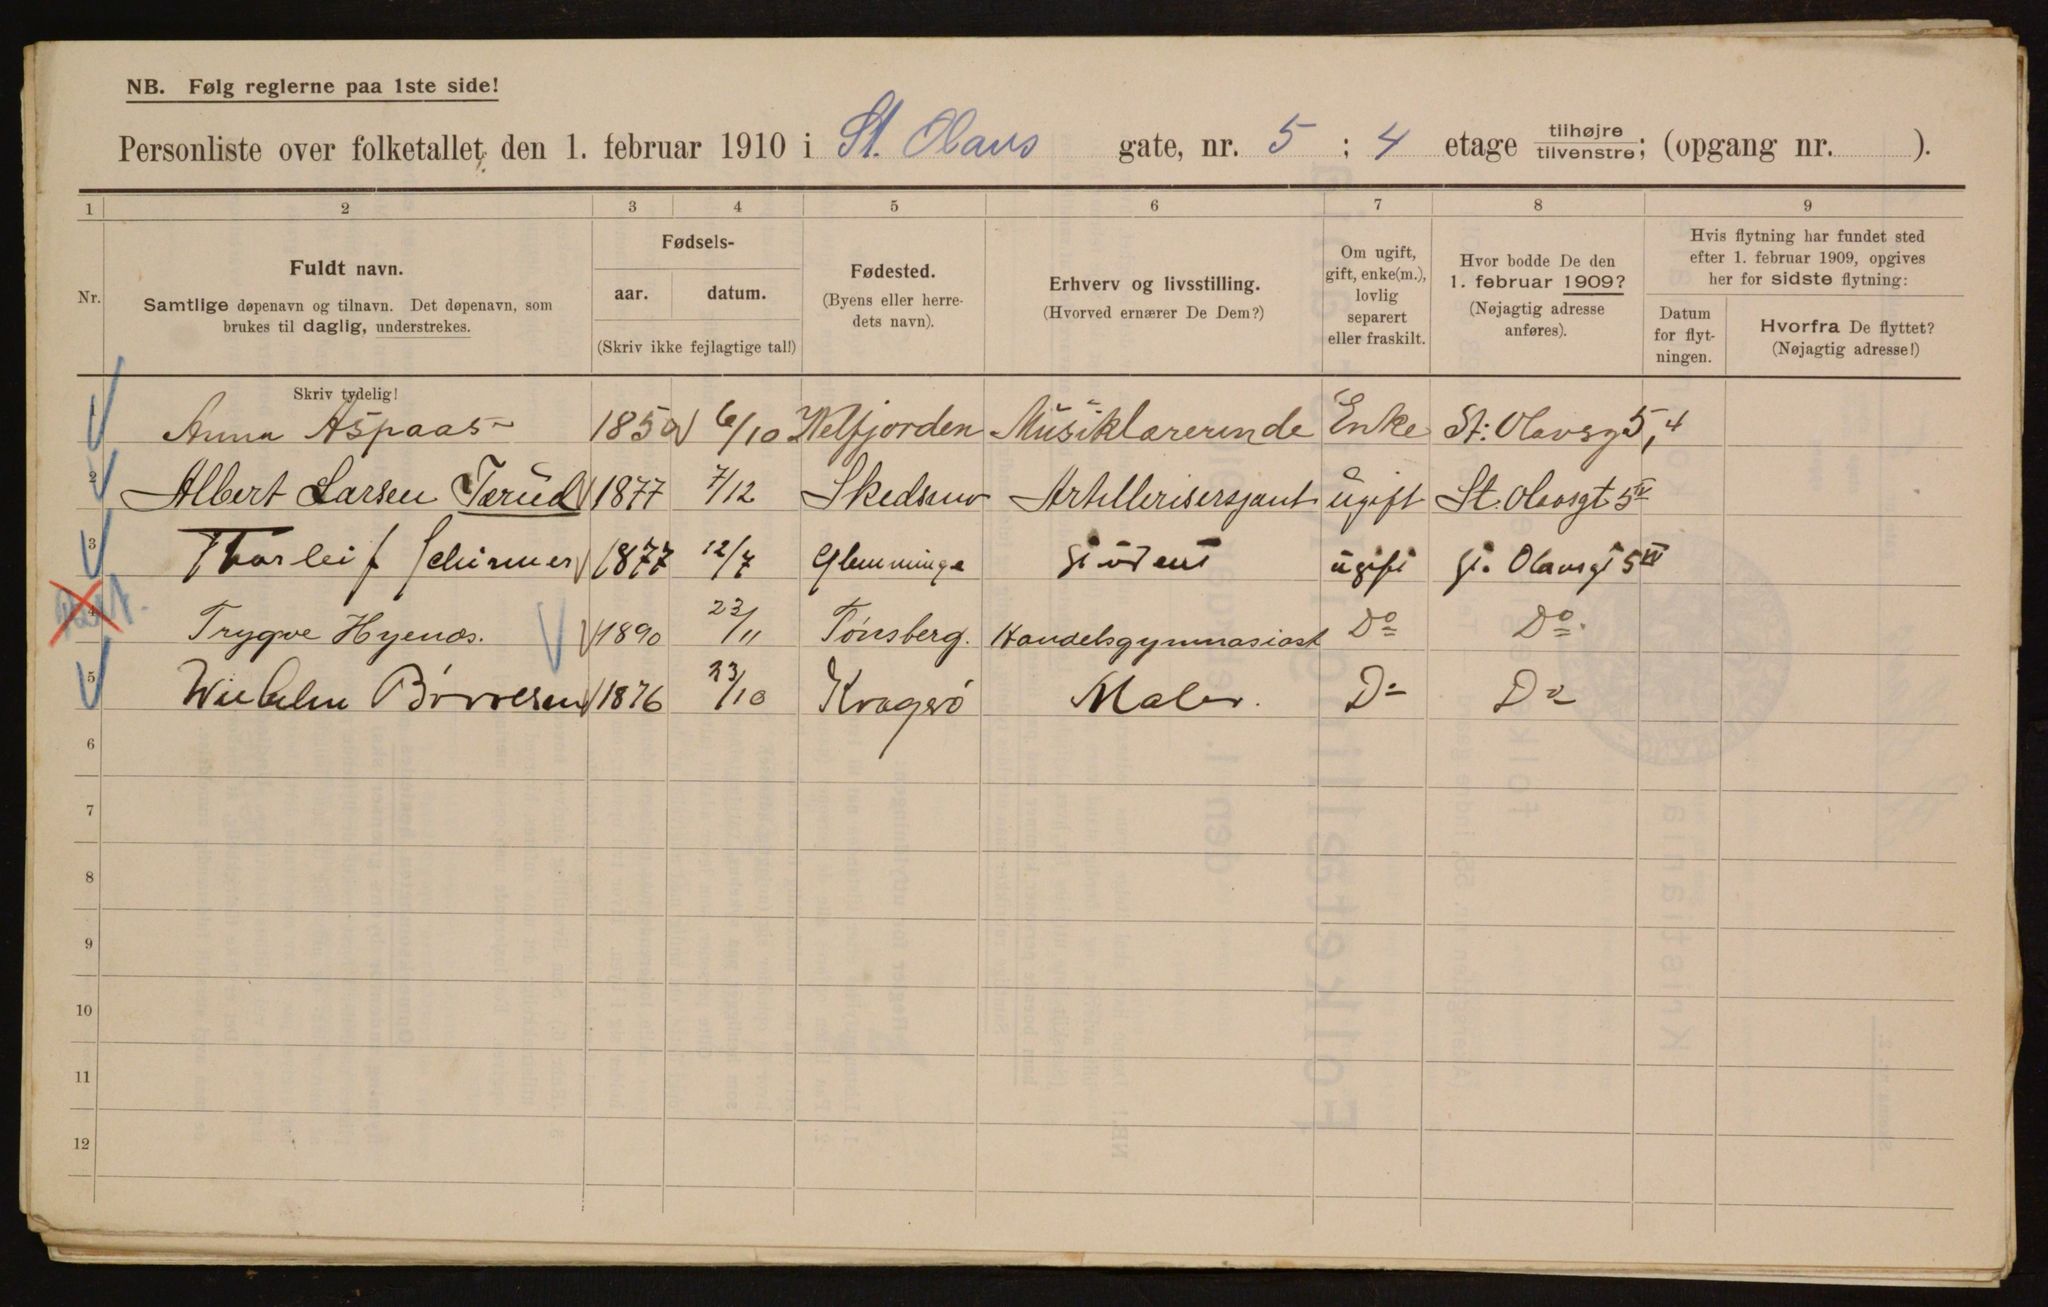 NB. Følg reglerne paa 1ste side!
Personliste over folketallet den 1. februar 1910 i St. Olavs gate, nr. 5 ; 4 etage tilhøjre tilvenstre; (opgang nr. ).
1 2 3 4 5 6 7 8 9
Nr.
Fuldt navn.
Samtlige døpenavn og tilnavn. Det døpenavn, som
brukes til daglig, understrekes.
Skriv tydelig!
Fødsels-
aar. datum.
(Skriv ikke fejlagtige tal!)
Fødested.
(Byens eller herre-
dets navn).
Erhverv og livsstilling.
(Hvorved ernærer De Dem?)
Om ugift,
gift, enke(m.),
lovlig
separert
eller fraskilt.
Hvor bodde De den
1. februar 1909?
(Nøjagtig adresse
anføres).
Hvis flytning har fundet sted
efter 1. februar 1909, opgives
her for sidste flytning:
Datum
for flyt-
ningen.
Hvorfra De flyttet?
(Nøjagtig adresse!)
1 Anna Aspaas 1850 6/10 Velfjorden Musiklærerinde Enke St: Olavsg 5, 4
2 Albert Larsen Tærud 1877 7/12 Skedsmo Artillerisersjant ugift St. Olavsgt 5 IV
3 Thorleif Schirmer 1877 12/7 Glemminge Student ugift St. Olavsgt 5 IV
4 Trygve Hyenæs. 1890 23/11 Tønsberg. Handelsgymnasiast Do Do
5 Wilhelm Børresen 1876 23/10 Kragerø Maler. Do Do
6
7
8
9
10
11
12